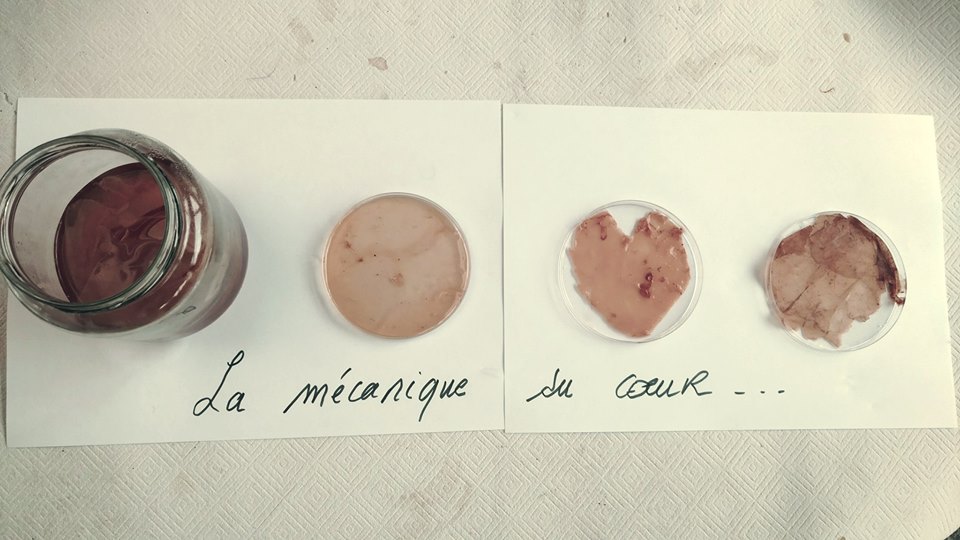 La mécanique du cœur ...